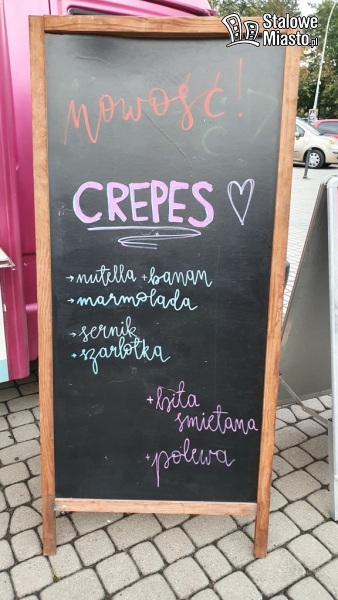 Stalowe
Miasto.pl
nowość!
CREPES
→ nutella + banan
→ marmolada
→ sernik
→ szarlotka
+ bita
śmietana
+ polewa